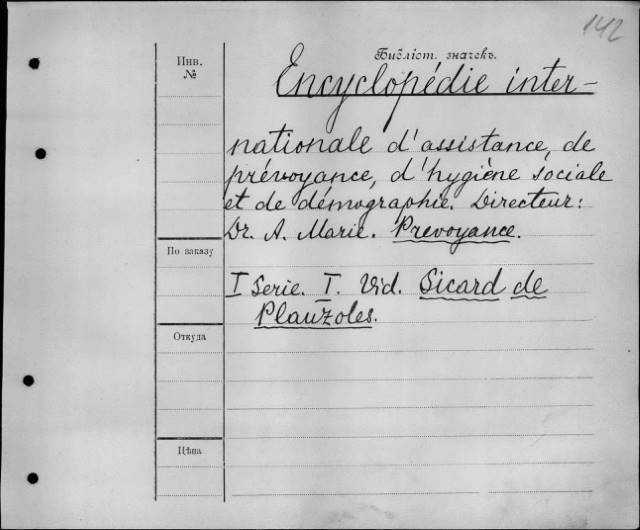 142
Библіот. значекъ.
Инв.
№
Encyclopédie inter-
nationale d'assistance, de
prévoyance, d'hygiène sociale
et de démographie. Directeur:
Dr. A. Marie. Prevoyance.
По заказу
I Serie. I. Vid. Sicard de
Plauzoles.
Откуда
Цѣна